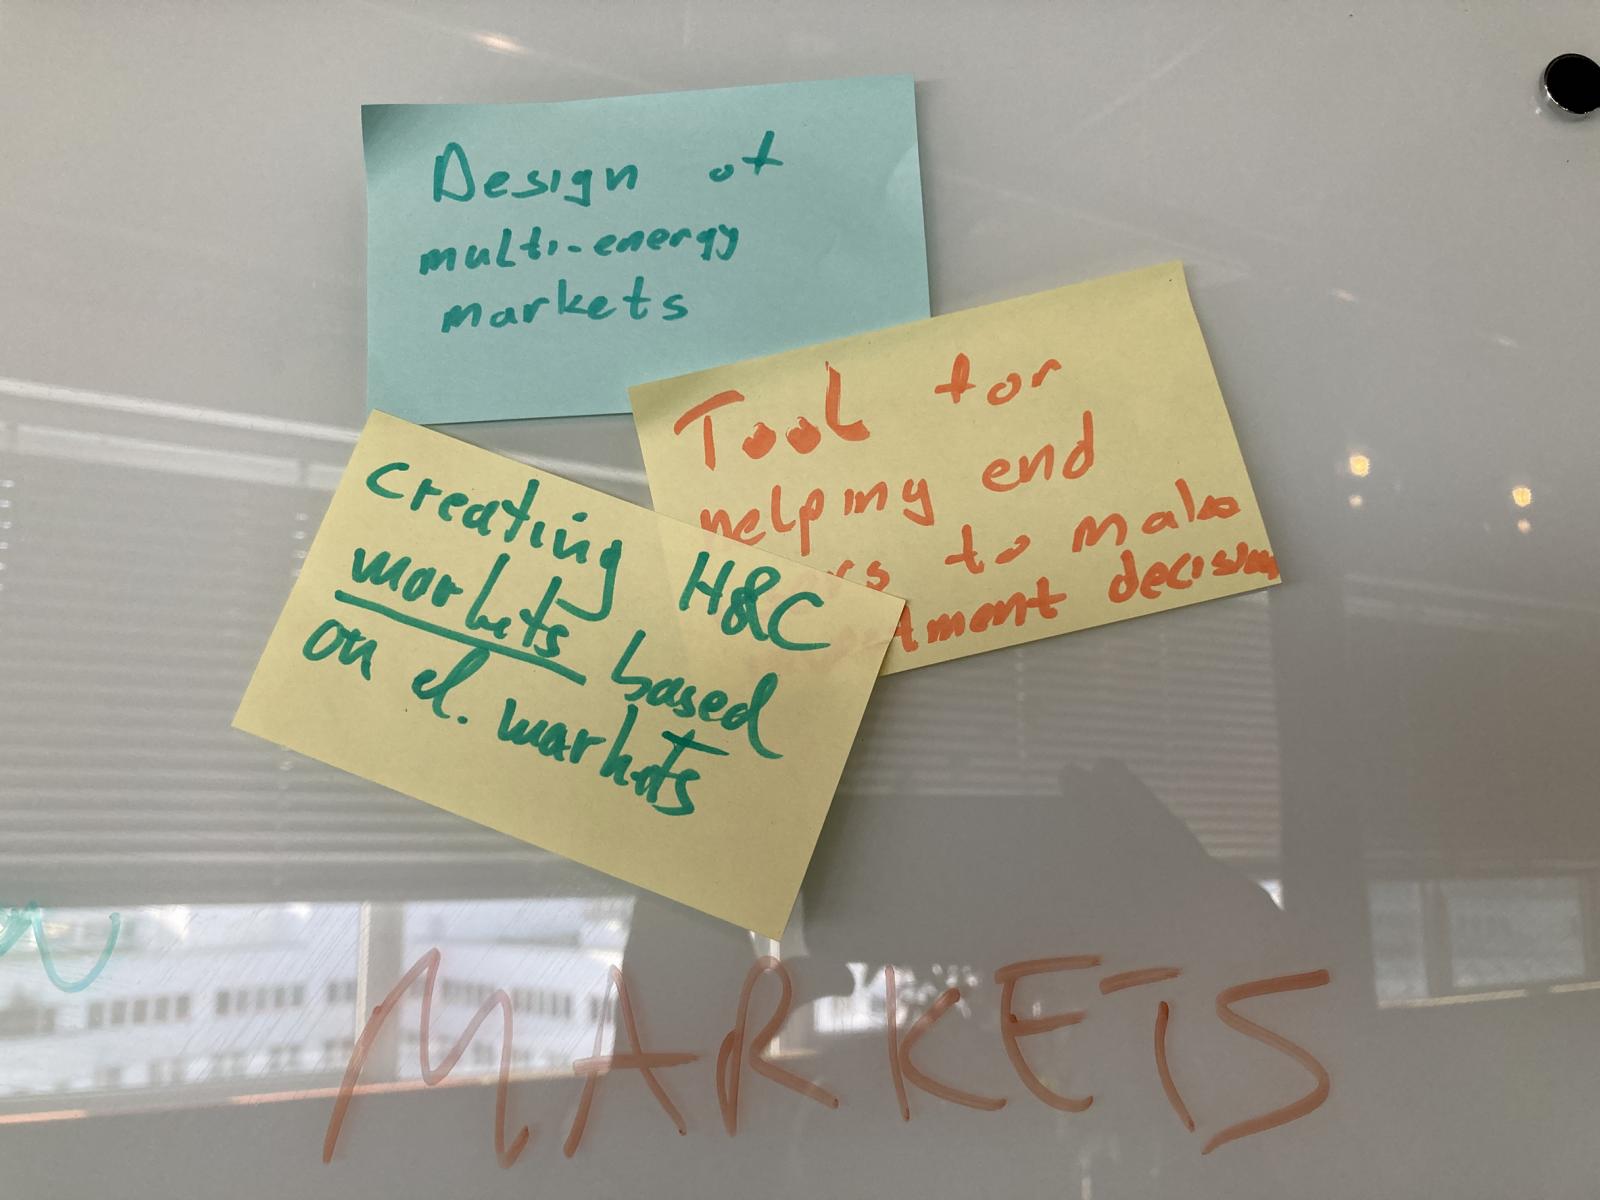 Design of
multi-energy
markets
Tool for
helping end
to make
decision
Creating H&C
markets based
on el. markets
MARKETS